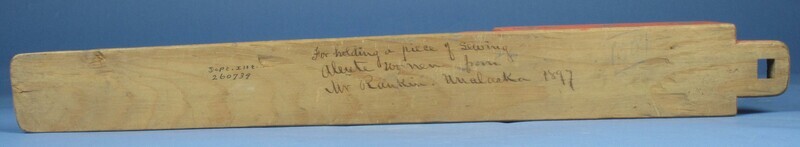 For holding a piece of sewing
Aleute women from
Mr Rankin. Unalaska 1897
260739